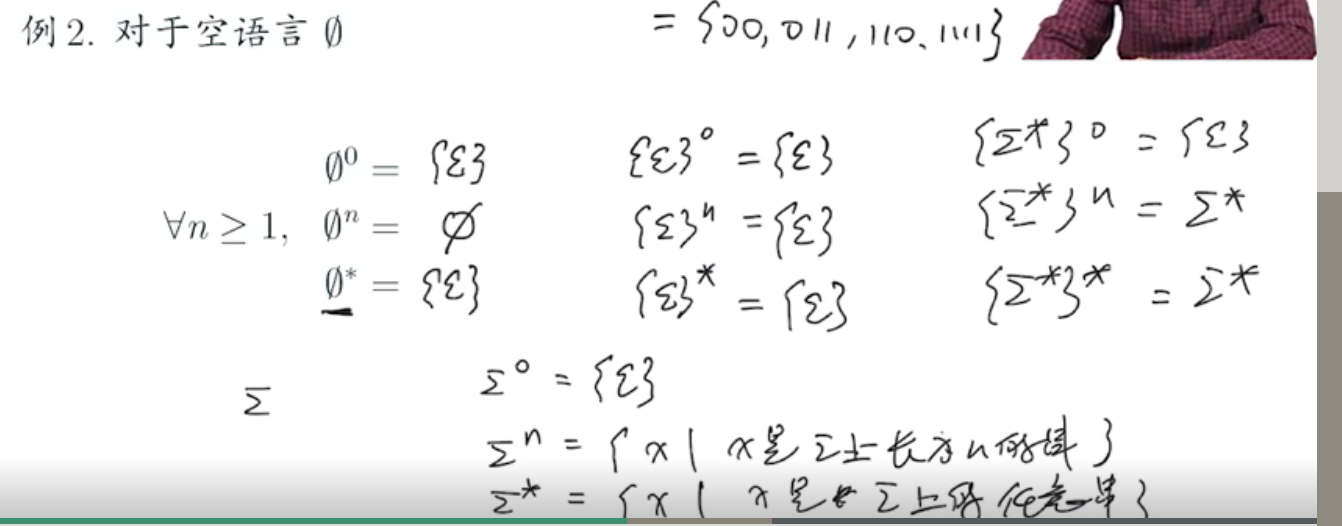 例 2. 对于空语言 ∅
= {00, 011, 110, 1111}
∅⁰ = {ε}  {ε}⁰ = {ε}  {Σ*}⁰ = {ε}
∀n ≥ 1,  ∅ⁿ = ∅  {ε}ⁿ = {ε}  {Σ*}ⁿ = Σ*
∅* = {ε}  {ε}* = {ε}  {Σ*}* = Σ*
Σ⁰ = {ε}
Σ
Σⁿ = { x | x是Σ上长为n的串 }
Σ* = { x | x是 Σ上的任意串 }